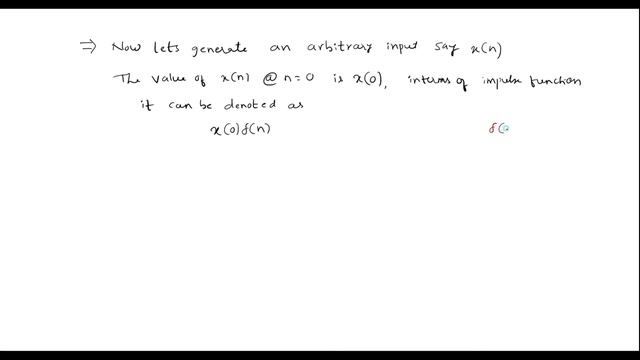 ⇒ Now lets generate an arbitrary input say x(n)
The value of x(n) @ n=0 is x(0), interms of impulse function
it can be denoted as
x(0)δ(n) δ(